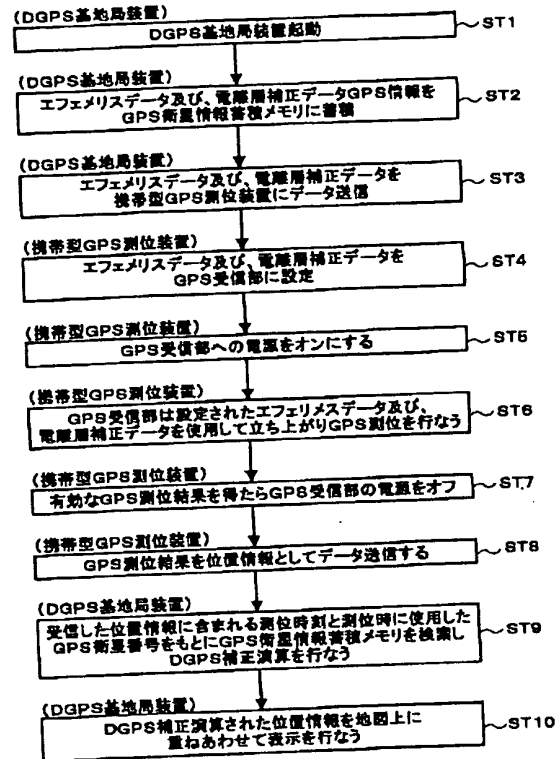 (DGPS基地局装置)
DGPS基地局装置起動
ST1
(DGPS基地局装置)
エフェメリスデータ及び、電離層補正データGPS情報を
GPS衛星情報蓄積メモリに蓄積
ST2
(DGPS基地局装置)
エフェメリスデータ及び、電離層補正データを
携帯型GPS測位装置にデータ送信
ST3
(携帯型GPS測位装置)
エフェメリスデータ及び、電離層補正データを
GPS受信部に設定
ST4
(携帯型GPS測位装置)
GPS受信部への電源をオンにする
ST5
(携帯型GPS測位装置)
GPS受信部は設定されたエフェリメスデータ及び、
電離層補正データを使用して立ち上がりGPS測位を行なう
ST6
(携帯型GPS測位装置)
有効なGPS測位結果を得たらGPS受信部の電源をオフ
ST7
(携帯型GPS測位装置)
GPS測位結果を位置情報としてデータ送信する
ST8
(DGPS基地局装置)
受信した位置情報に含まれる測位時刻と測位時に使用した
GPS衛星番号をもとにGPS衛星情報蓄積メモリを検索し
DGPS補正演算を行なう
ST9
(DGPS基地局装置)
DGPS補正演算された位置情報を地図上に
重ねあわせて表示を行なう
ST10